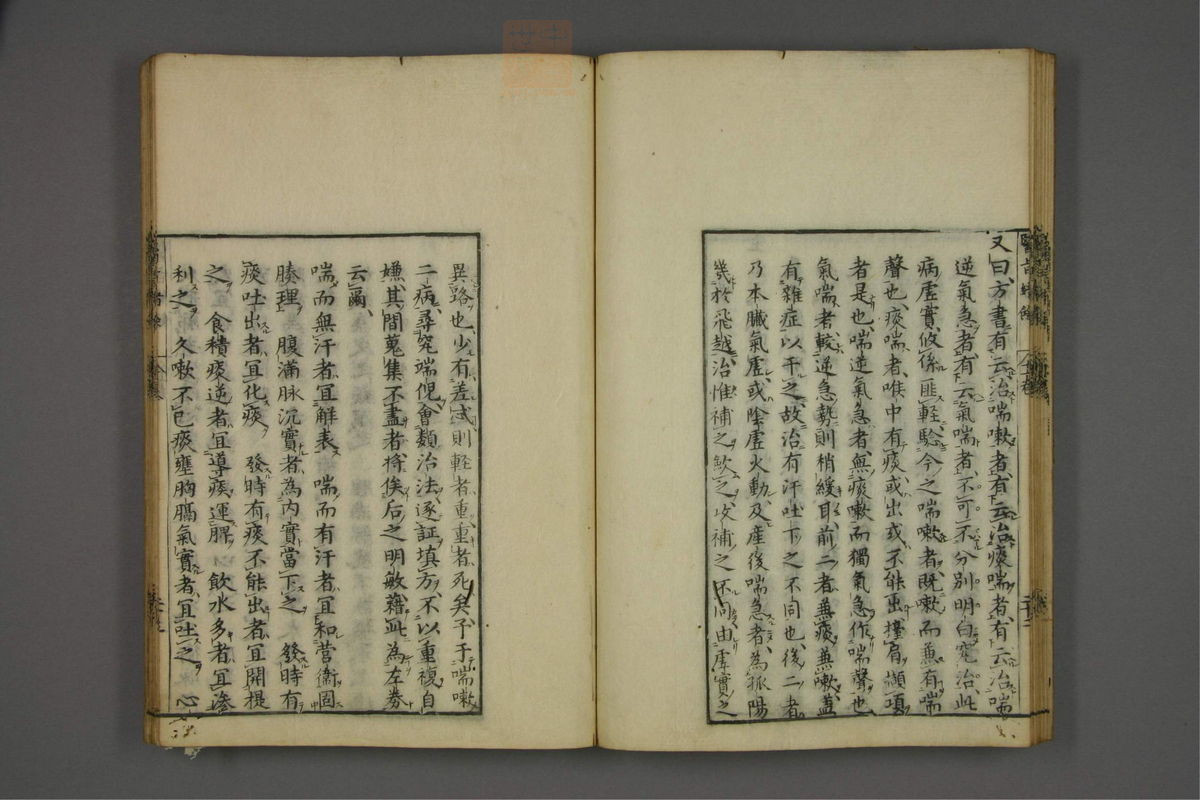 又曰方書有云治喘嗽者有云治痰喘者有云治喘
逆氣急者有云氣喘者不可不分別明白究治此
病虛實攸係匪軽驗今之喘嗽者既嗽而兼有喘
聲也痰喘者喉中有痰或出或不能出擡肩擷項
者是也喘逆氣急者無痰嗽而獨氣急作喘聲也
氣喘者較逆急勢則稍緩耳前二者兼痰兼嗽蓋
有雜症以干之故治有汗吐下之不同也後二者
乃本臟氣虛或陰虛火動及產後喘急者為孤陽
幾於飛越治惟補之斂之攻補之不同由虛實之
異路也少有差忒則軽者重重者死矣予于喘嗽
二病尋究端倪會類治法逐証填方不以重複自
嫌其間蒐集不盡者將俟后之明敏藉此為左券
云爾
喘而無汗者宜解表 喘而有汗者宜和營衞固
腠理 腹滿脉沉實者為内實當下之 發時有
痰吐出者宜化痰 發時有痰不能出者宜開提
之 食積痰逆者宜導痰運脾 飲水多者宜滲
利之 久嗽不已痰壅胸膈氣實者宜吐之 心